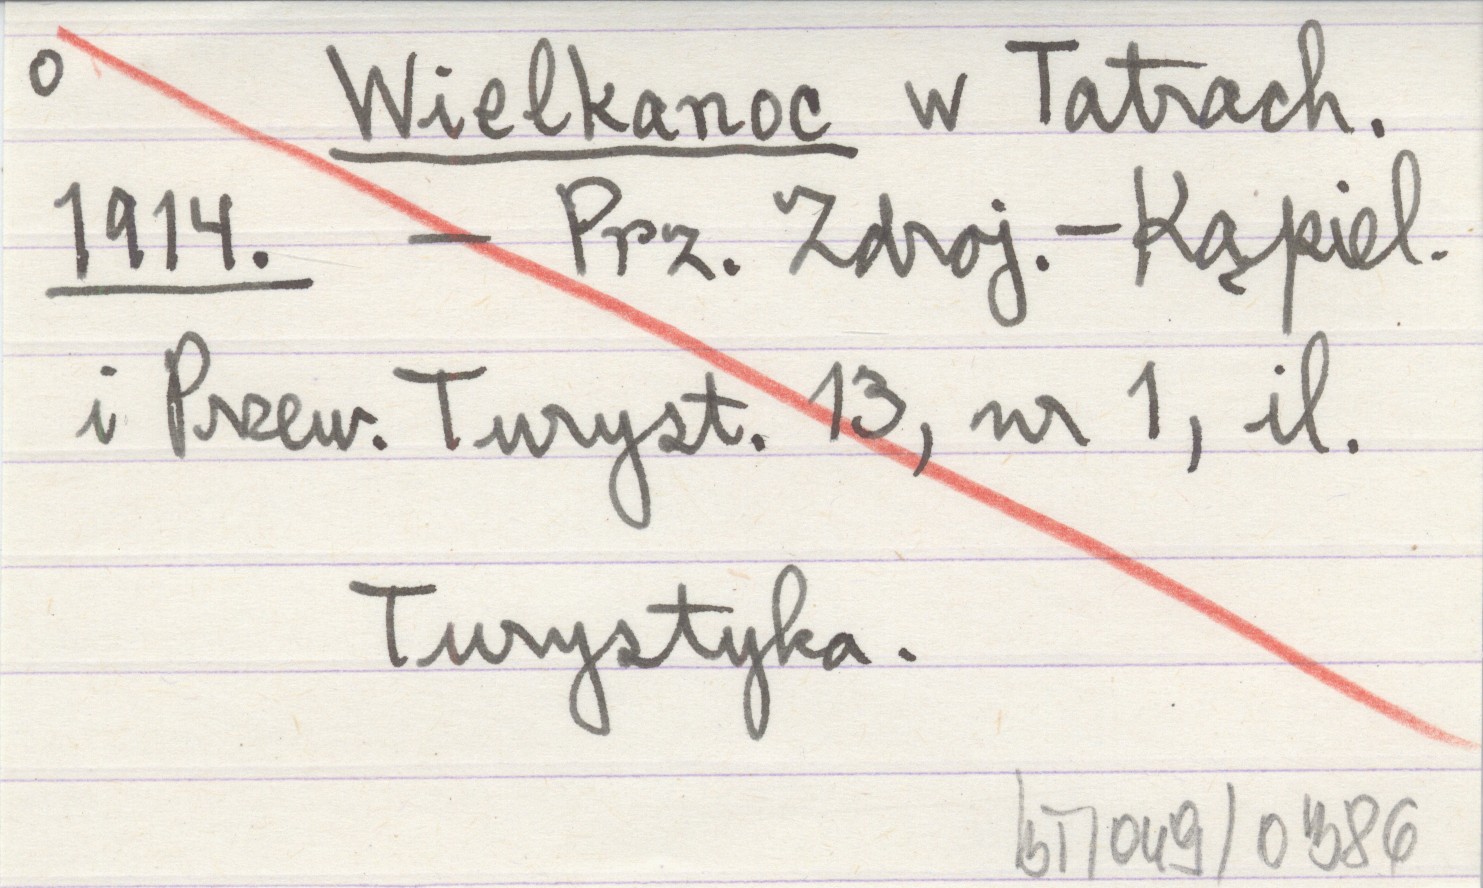 o Wielkanoc w Tatrach.
1914. — Prz. Zdroj.-Kąpiel.
i Przew. Turyst. 13, nr 1, il.
Turystyka.
BT/049/0386